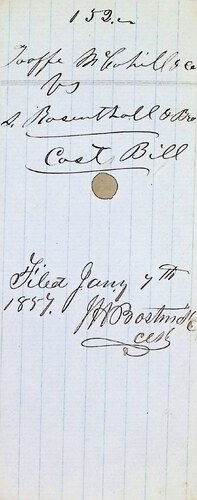 152.
McCahill & Co
Vs
Rosenthall & Bro
Cost Bill
Filed Jany 7th
1857.
Clk